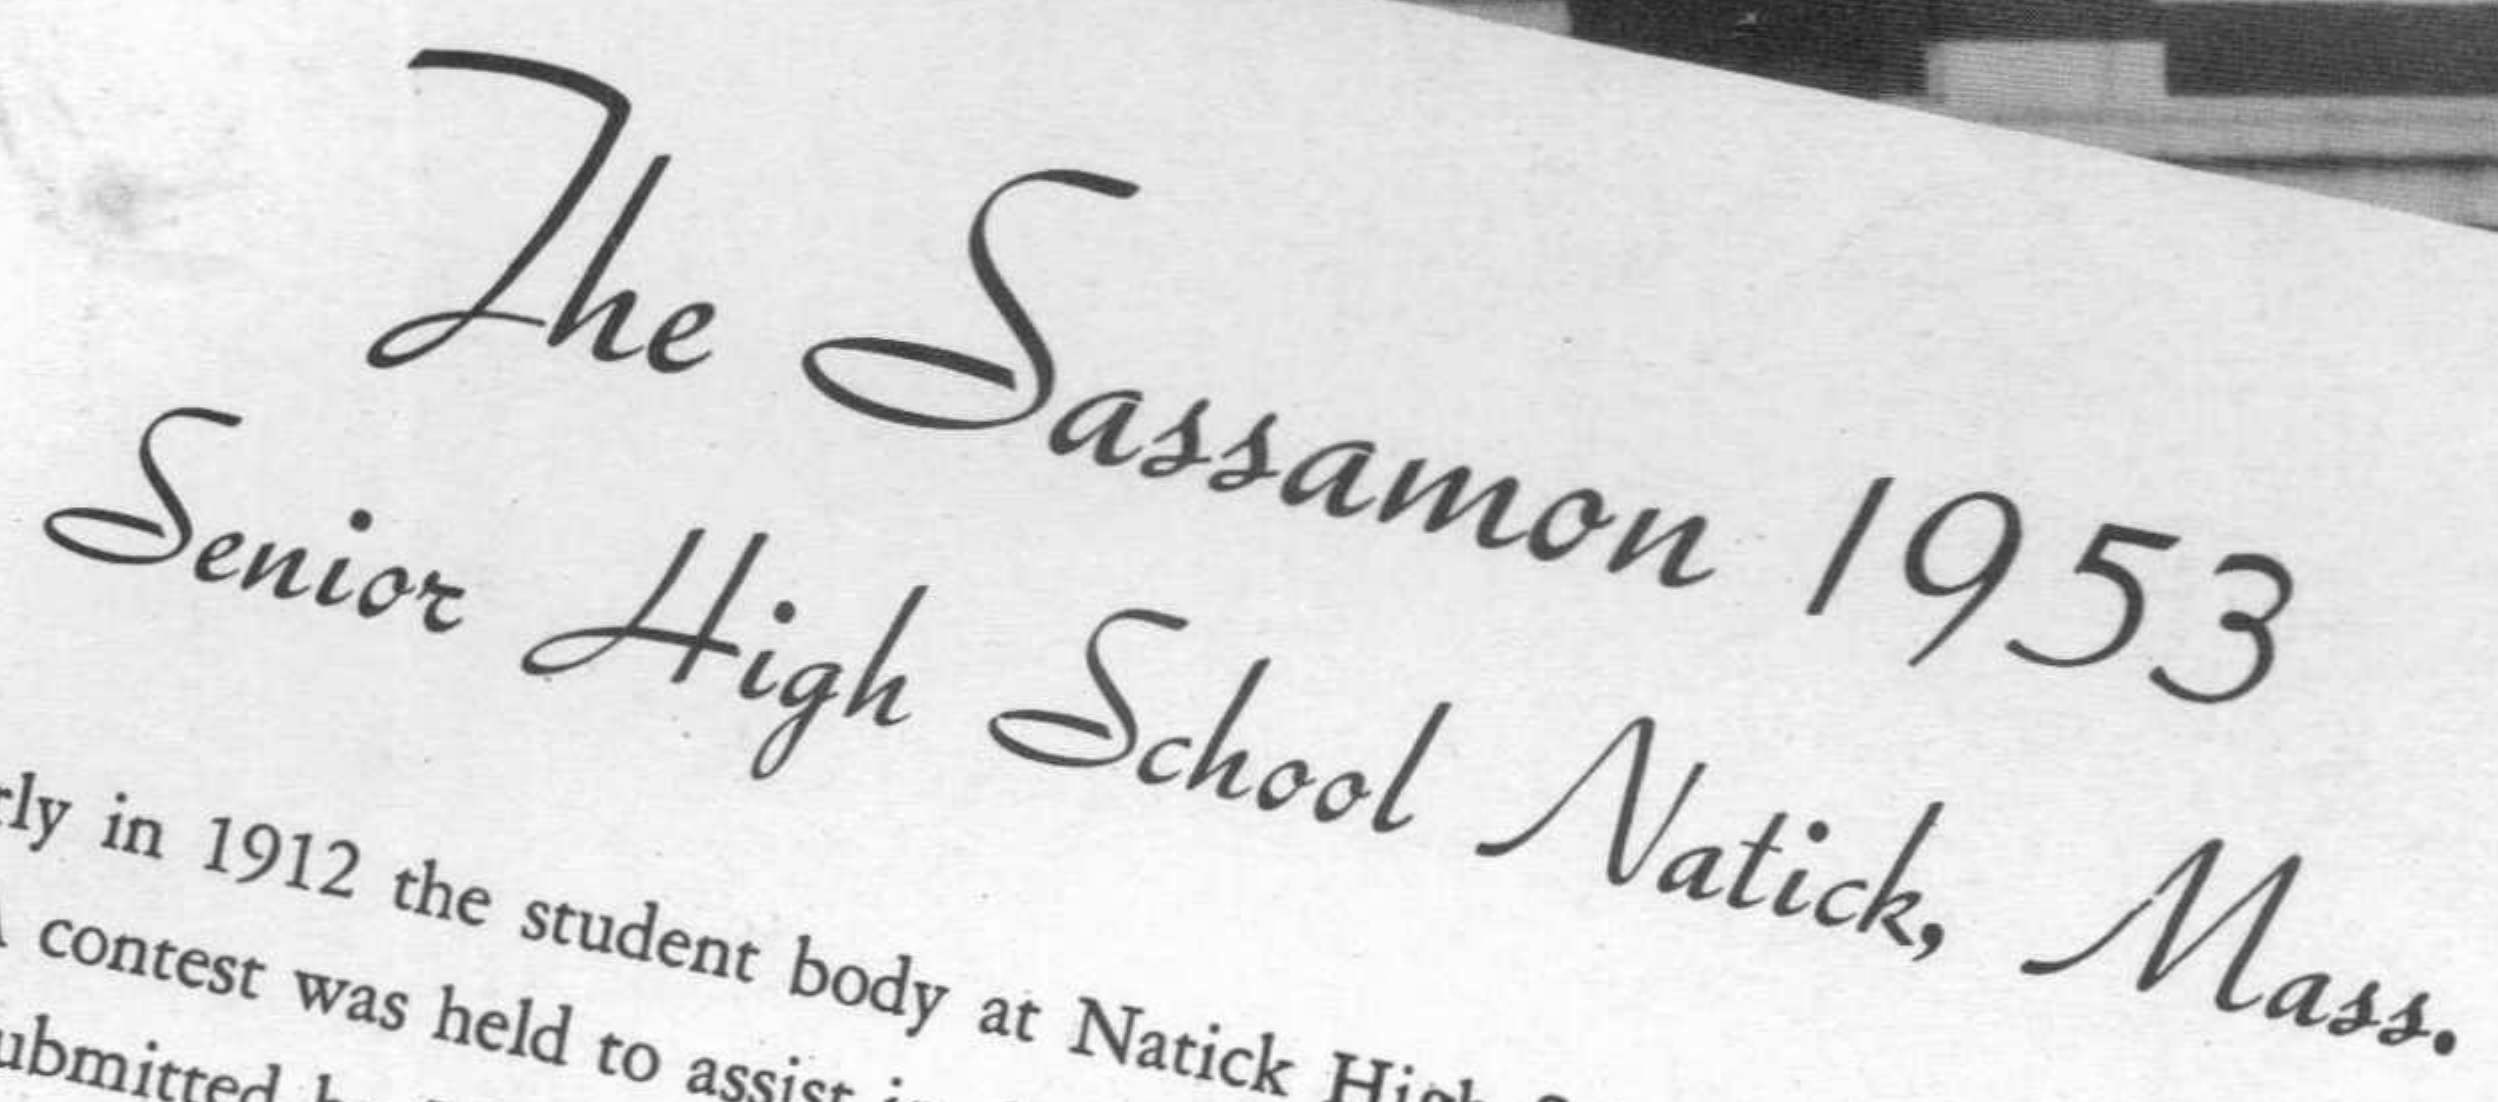 The Sassamon 1953
Senior High School Natick, Mass.
in 1912 the student body at Natick High
contest was held to assist